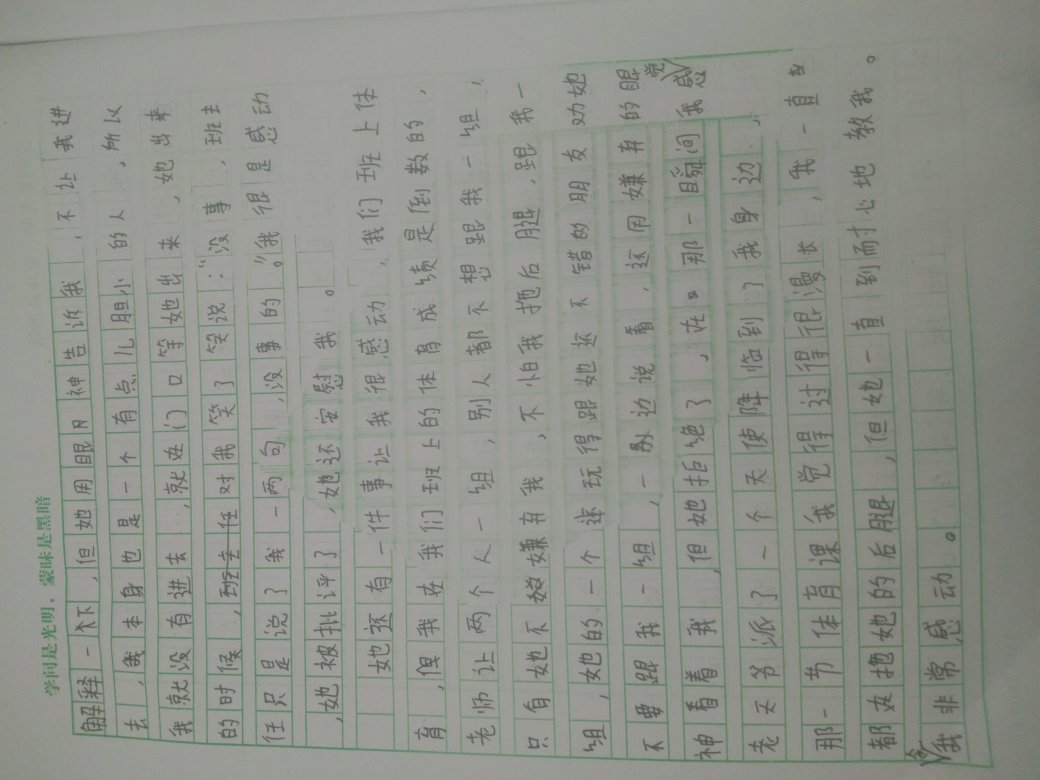 学问是光明，蒙昧是黑暗
解释一下，但她用眼神告诉我，不让我进
去，我本身也是一个有点儿胆小的人，所以
我就没有进去，就在门口等她出来，她出来
的时候，班主任对我笑了笑说：“没事，班主
任只是说了我一两句，没事的。”我很是感动
，她被批评了，她还安慰我。
她还有一件事让我很感动，我们班上体
育，但我在我们班上的体育成绩是倒数的，
老师让两个人一组，别人都不想跟我一组，
只有她不嫌有我，不怕我拖后腿，跟我一
组，她的一个还玩得跟她还不错的朋友劝她
不要跟我一组，一边说着，还用嫌弃的眼
神看着我，但她拒绝了，在那一瞬间我感觉
老天爷派了一个天使降临到了我身边，
那一节体育课我觉得过得很漫长，我一直在
都在拖她的后腿，但她一直到耐心地教我。
我会非常感动。